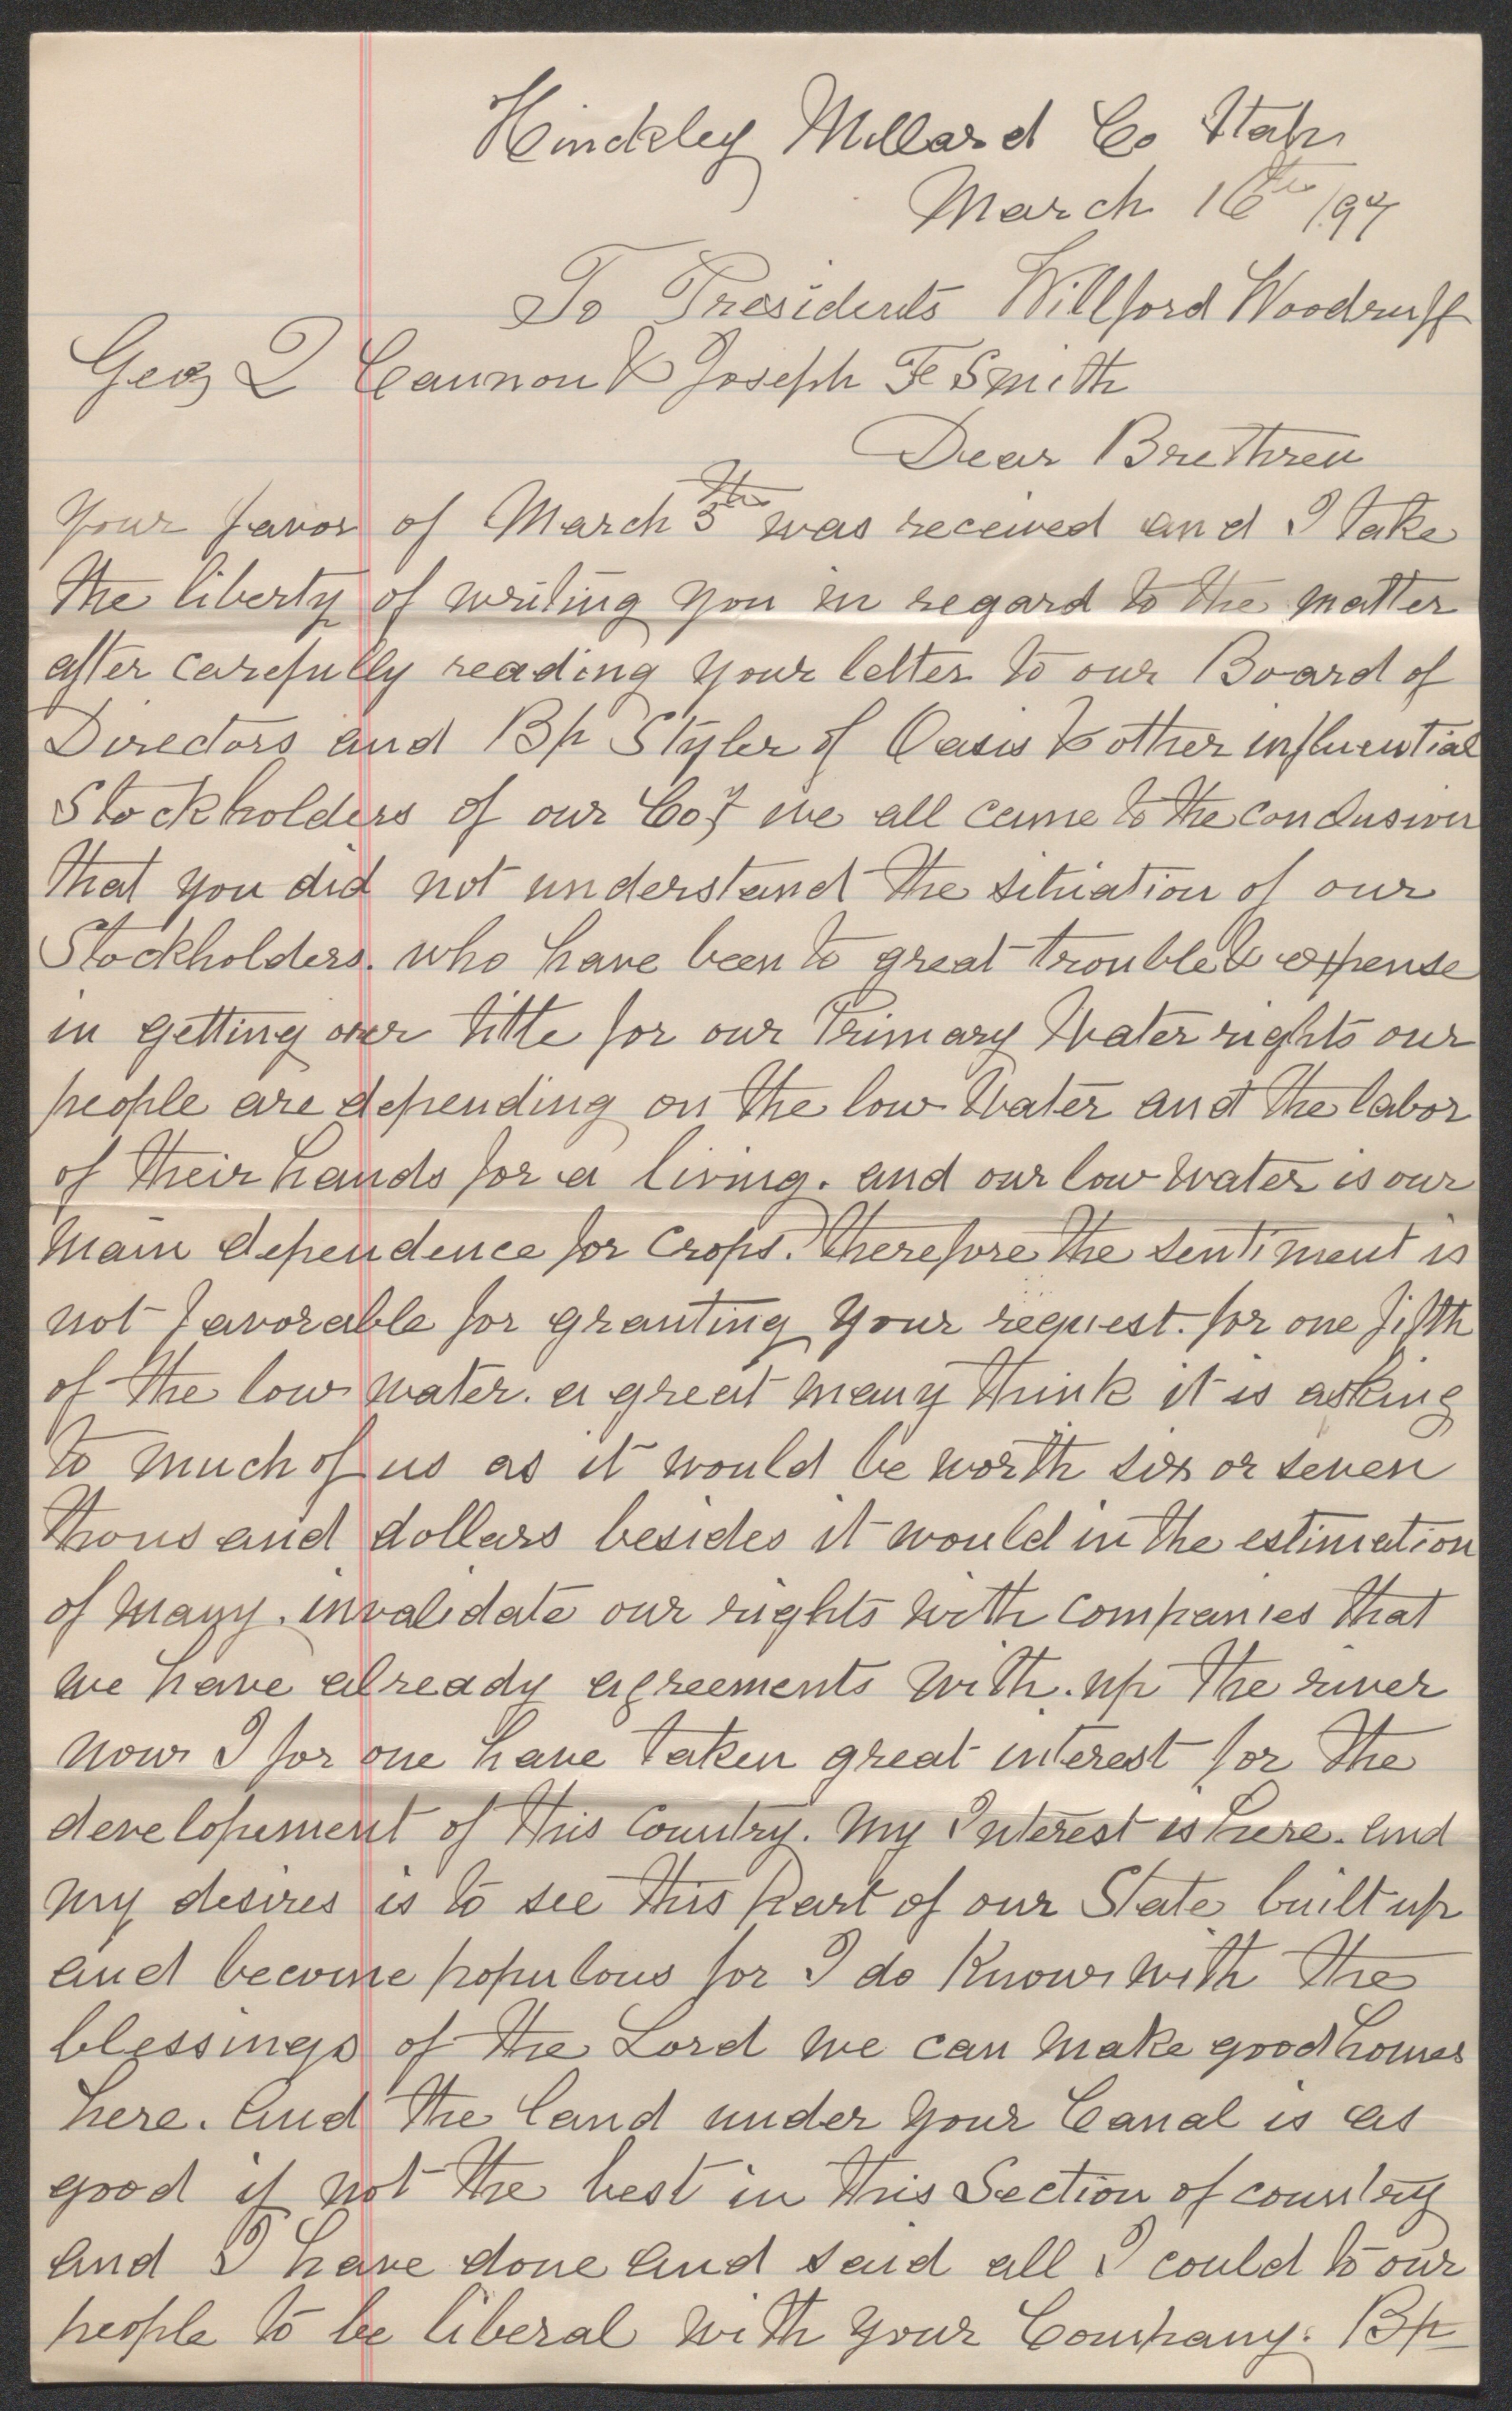 Hinckley Millard Co Utah
March 16th /97
To Presidents Willford Woodruff
Geo Q Cannon & Joseph F Smith
Dear Brethren
Your favor of March 5th was received and I take
the liberty of writing you in regard to the matter
after carefully reading your letter to our Board of
Directors and Bp Styler of Oasis & other influential
Stockholders of our Coy we all came to the conclusion
that you did not understand the situation of our
Stockholders. who have been to great trouble & expense
in getting our title for our Primary Water rights our
people are depending on the low Water and the labor
of their hands for a living. and our low water is our
main dependence for crops. therefore the sentiment is
not favorable for granting your request. for one fifth
of the low water. a great many think it is asking
to much of us as it would be worth six or seven
thousand dollars besides it would in the estimation
of many. invalidate our rights with companies that
we have already agreements with. up the river
now I for one have taken great interest for the
developement of this country. my Interest is here. and
my desires is to see this part of our State built up
and become populous for I do Know with the
blessings of the Lord we can make good homes
here. and the land under your Canal is as
good if not the best in this Section of country
and I have done and said all I could to our
people to be liberal with your Company. Bp